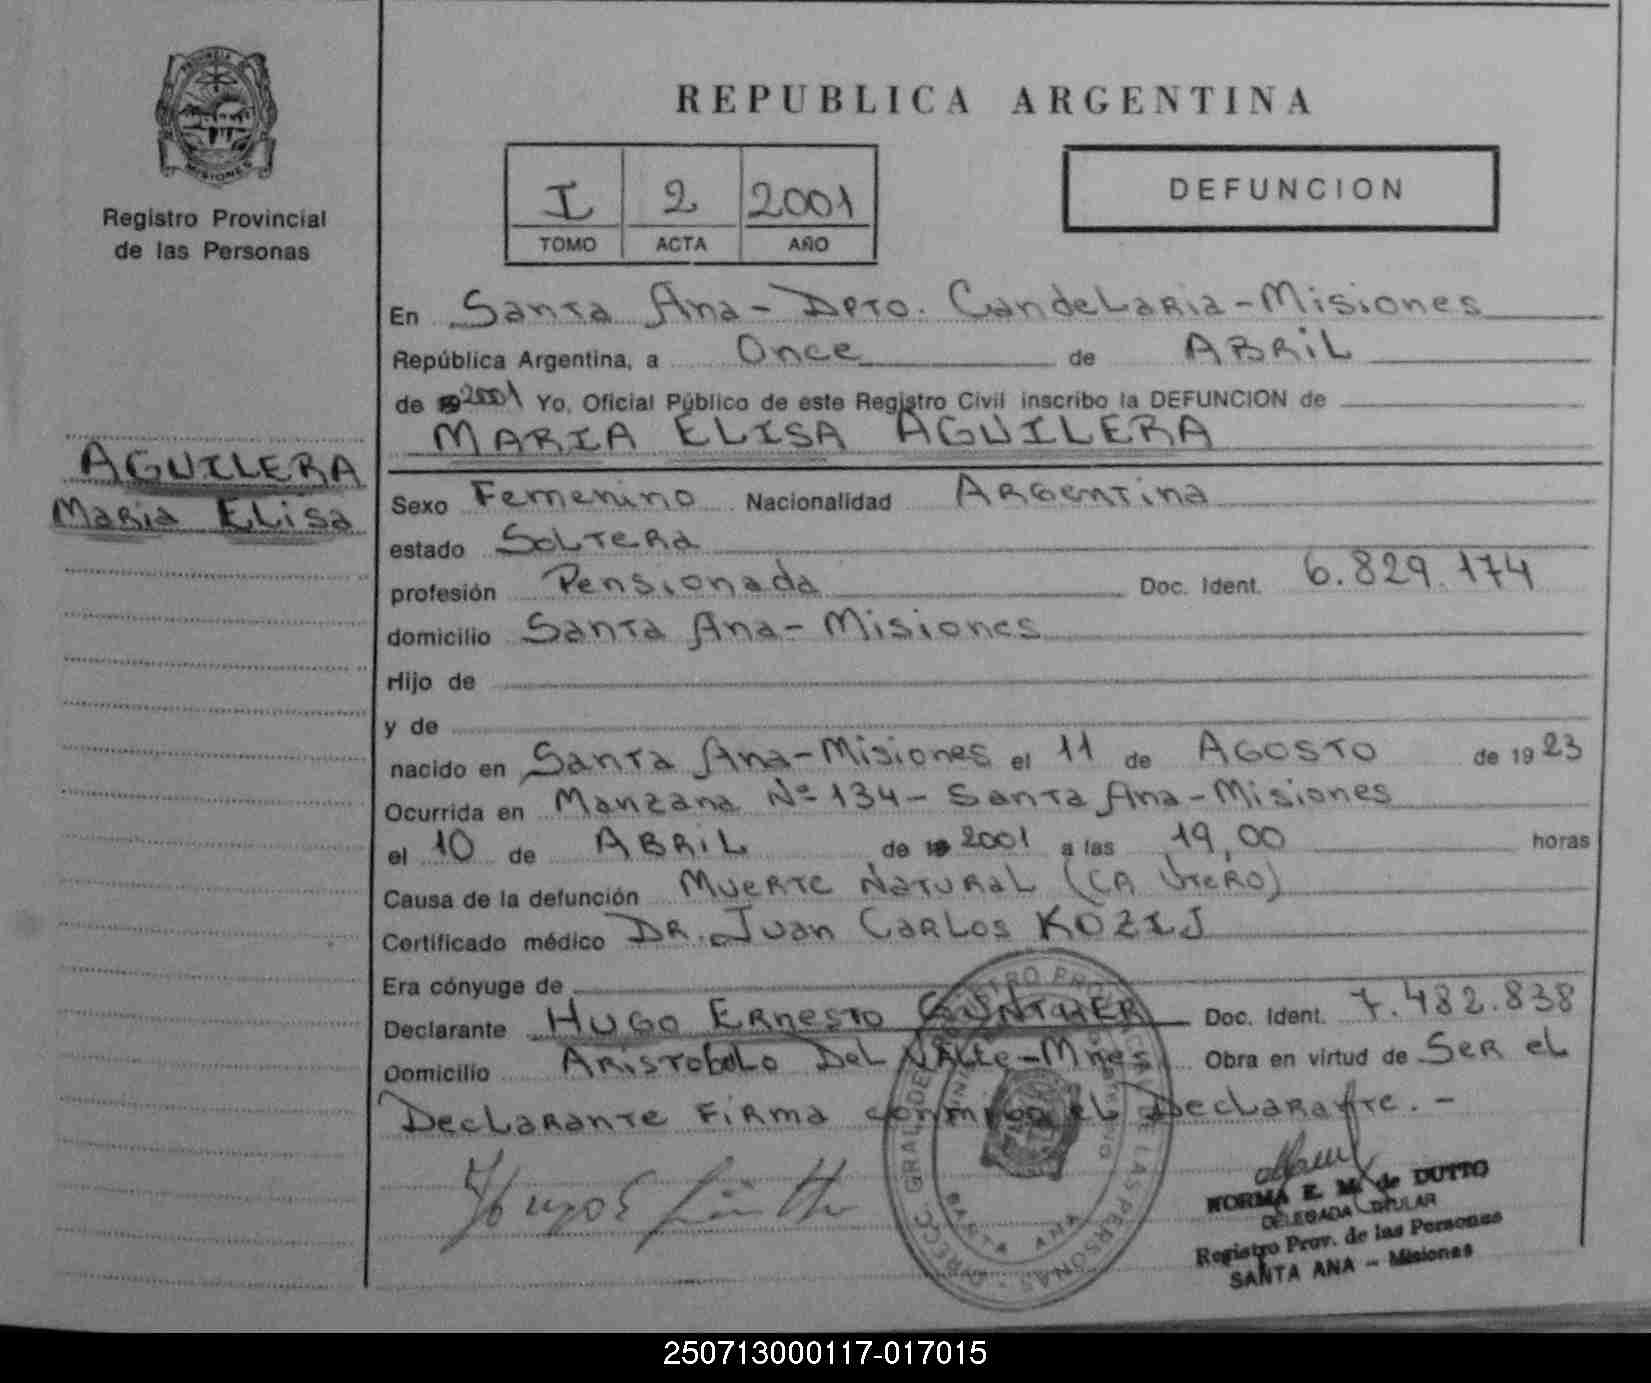 PROVINCIA
MISIONES
Registro Provincial
de las Personas
REPUBLICA ARGENTINA
I 2 2001
TOMO ACTA AÑO
DEFUNCION
En Santa Ana - Dpto. Candelaria - Misiones
República Argentina, a Once de ABRIL
de 2001 Yo, Oficial Público de este Registro Civil inscribo la DEFUNCION de
MARIA ELISA AGUILERA
AGUILERA
Maria Elisa
Sexo Femenino Nacionalidad Argentina
estado Soltera
profesión Pensionada Doc. Ident. 6.829.174
domicilio Santa Ana - Misiones
Hijo de
y de
nacido en Santa Ana - Misiones el 11 de AGOSTO de 1923
Ocurrida en Manzana Nº 134 - Santa Ana - Misiones
el 10 de ABRIL de 2001 a las 19,00 horas
Causa de la defunción Muerte Natural (CA Utero)
Certificado médico DR. Juan Carlos KOZIJ
Era cónyuge de
Declarante HUGO ERNESTO GUNTHER Doc. Ident. 7.482.838
Domicilio Aristobolo Del Valle - Mnes Obra en virtud de Ser el
Declarante Firma conmigo el Declarante. -
Hugo E
NORMA E. M. de DUTTO
DELEGADA TITULAR
Registro Prov. de las Personas
SANTA ANA - Misiones
SANTA ANA
250713000117-017015